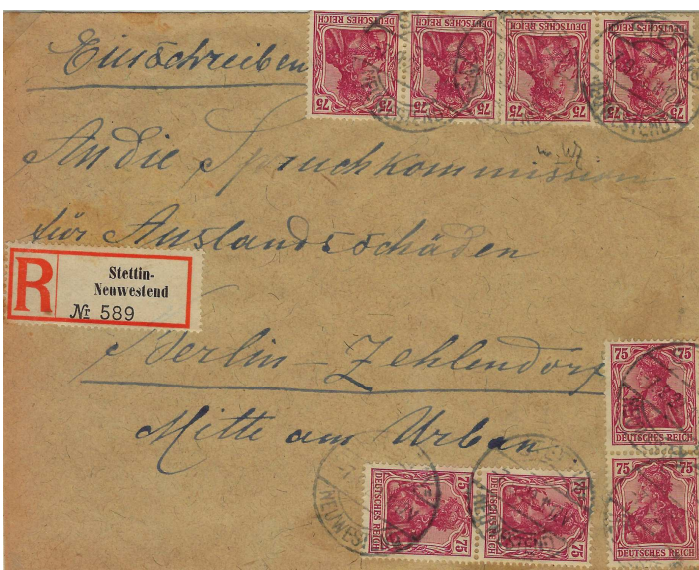 Einschreiben
75 DEUTSCHES REICH
75 DEUTSCHES REICH
75 DEUTSCHES REICH
75 DEUTSCHES REICH
An die Spruchkommission
für Auslandsschäden
R
Stettin-
Neuwestend
№ 589
Berlin-Zehlendorf
Mitte am Urban
75
DEUTSCHES REICH
75
DEUTSCHES REICH
75 DEUTSCHES REICH
75 DEUTSCHES REICH